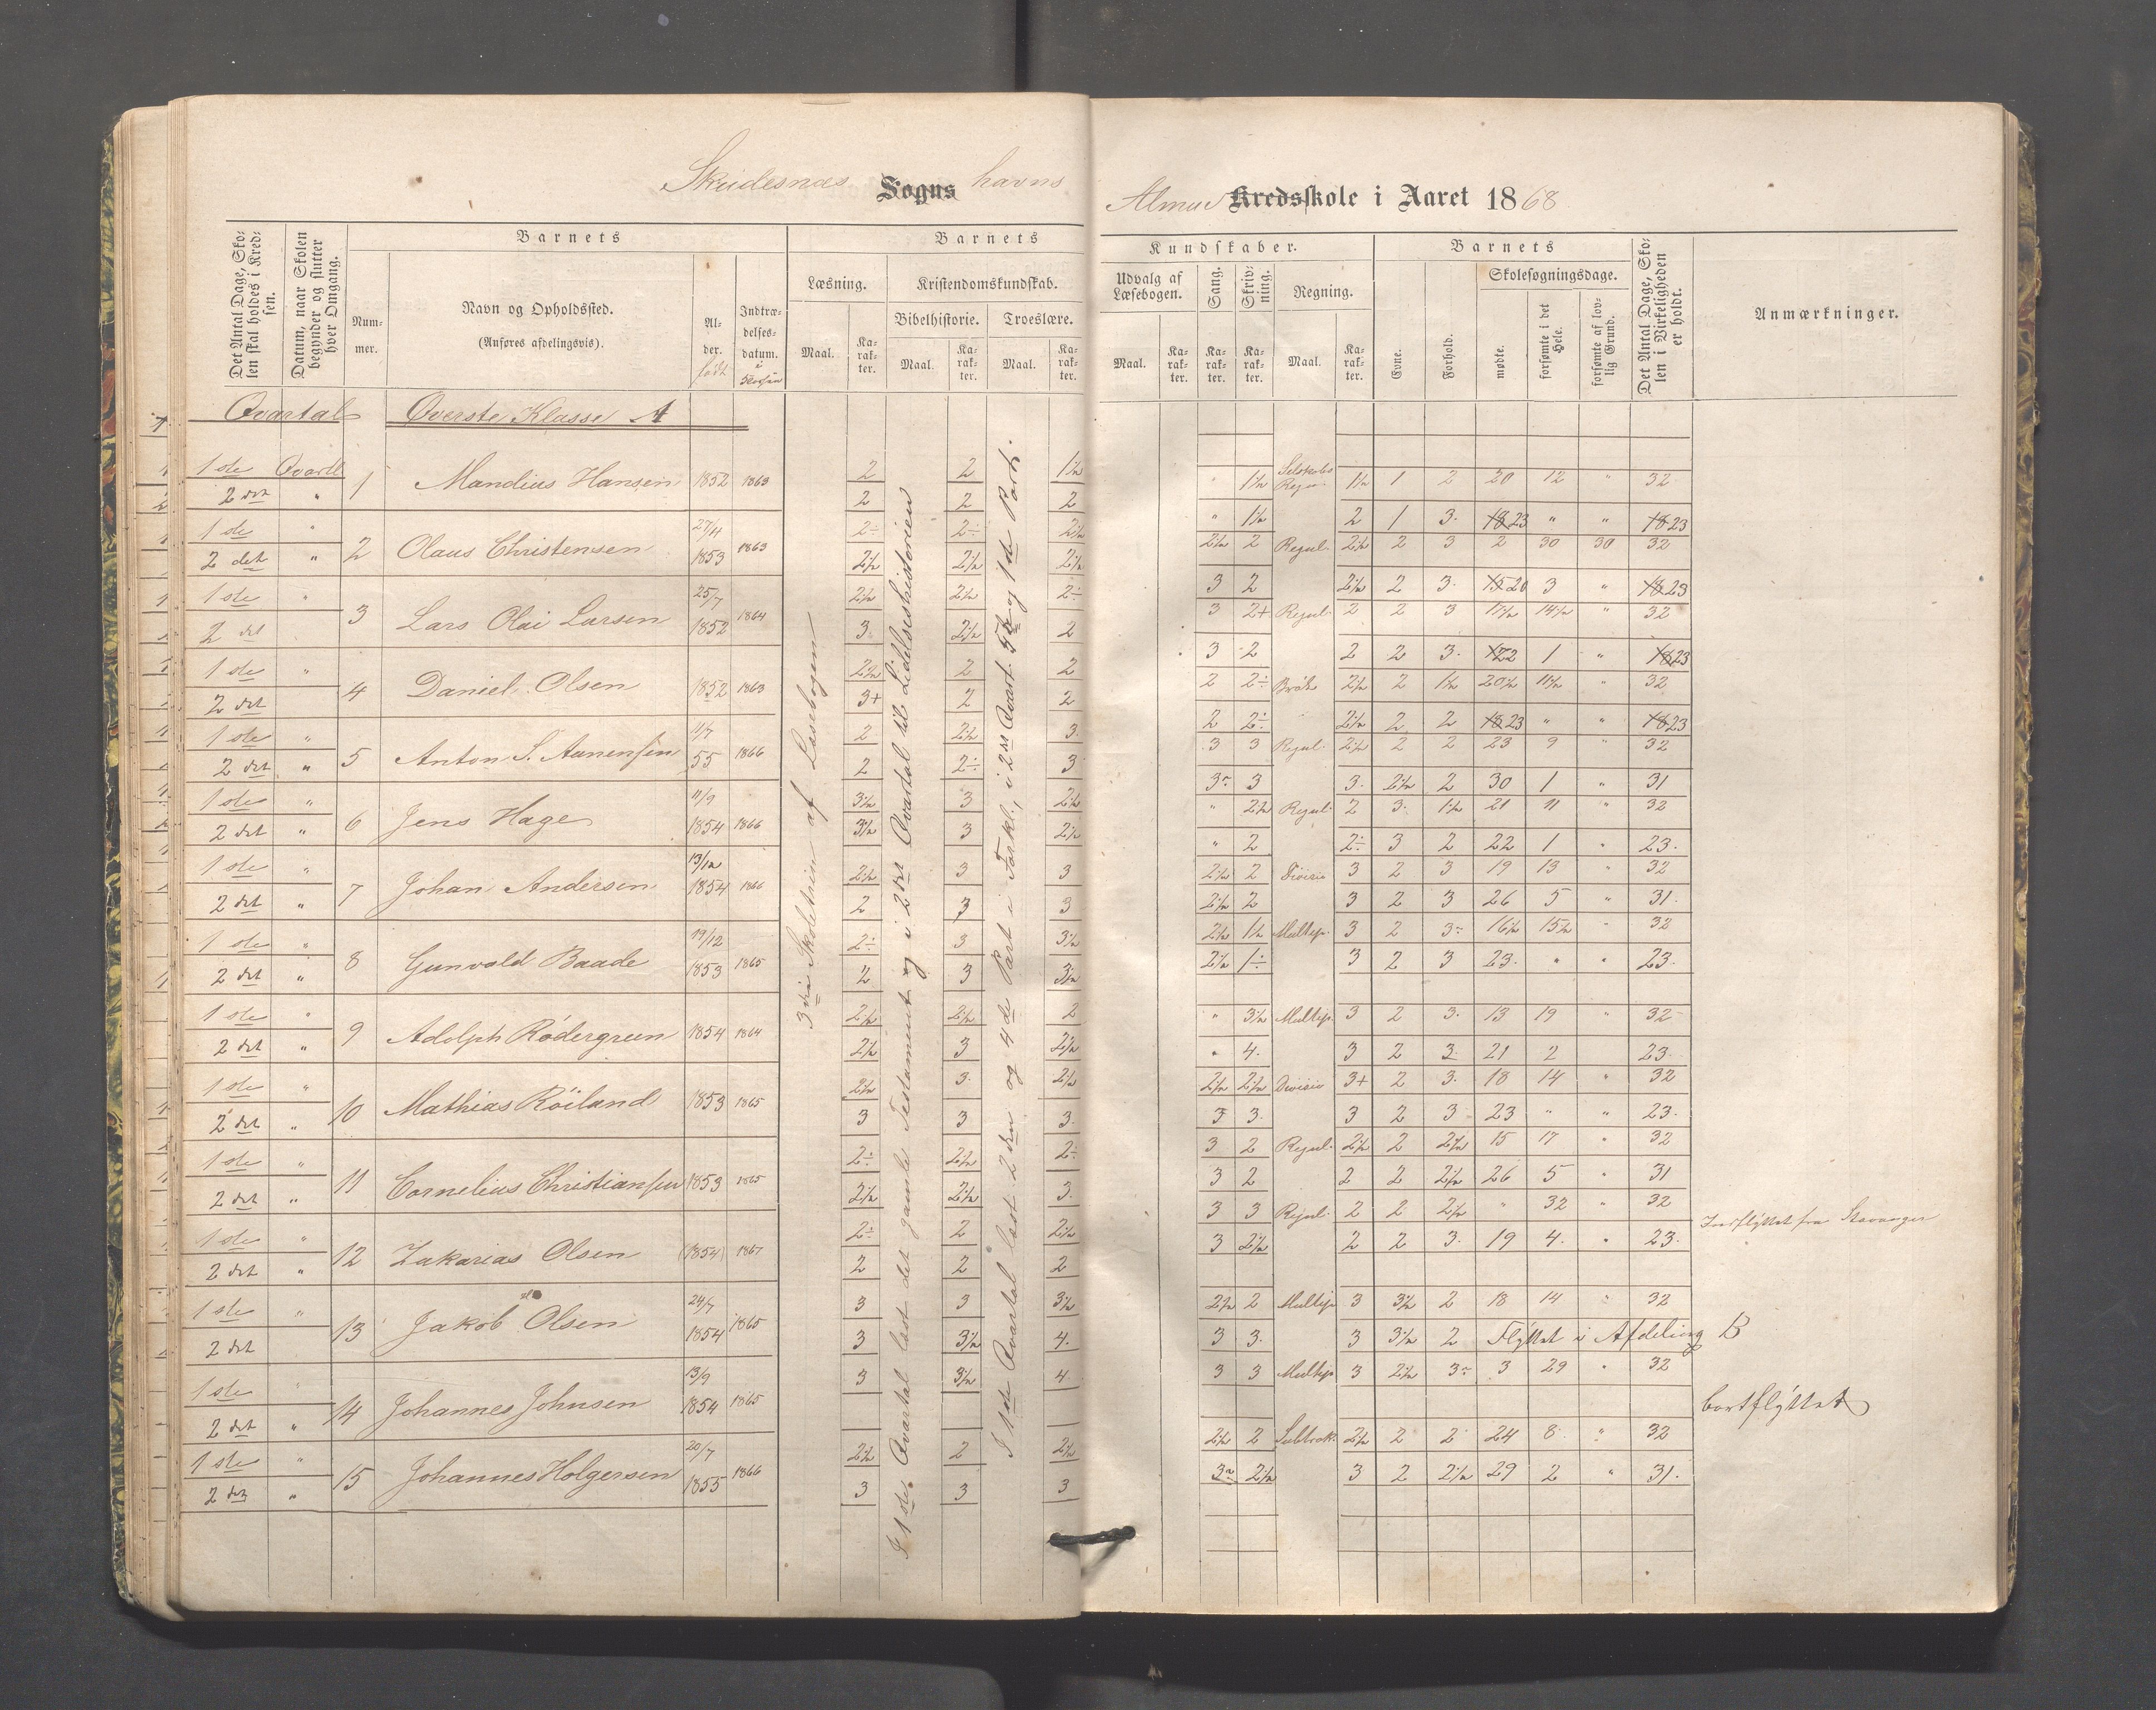 Skudesnæs Sogns havns
Almue Kredsskole i Aaret 1868
Det Antal Dage, Skolen skal holdes i Kredsen.
Datum, naar Skolen begynder og slutter hver Omgang.
Barnets
Nummer.
Navn og Opholdssted.
(Anføres afdelingsvis).
Alder.
født
Indtrædelsesdatum.
Barnets
Læsning.
Maal.
Karakter.
Kristendomskundskab.
Bibelhistorie.
Maal.
Karakter.
Troeslære.
Maal.
Karakter.
Kundskaber.
Udvalg af Læsebogen.
Maal.
Karakter.
Sang.
Karakter.
Skrivning.
Karakter.
Regning.
Maal.
Karakter.
Barnets
Evne.
Forhold.
Skolesøgningsdage.
mødte.
forsømte i det Hele.
forsømte af lovlig Grund.
Det Antal Dage, Skolen i Virkeligheden er holdt.
Anmærkninger.
Qvartal Øverste Klasse A
1ste Qvartl 1 Mandius Hansen 1852 1863 2 2 1½ " 1½ Selskabs Regn. 1½ 1 2 20 12 " 32
2det " 2 2 2 " 1½ 2 1 3 18 23 " " 18 23
1ste " 2 Olaus Christensen 27/4 1853 1863 2÷ 2÷ 2½ 2½ 2 Regul. 2½ 2 3 2 30 30 32
2det " 2½ 2½ 2½ 3 2 2½ 2 3 15 20 3 " 18 23
1ste " 3 Lars Olai Larsen 25/7 1852 1864 2½ 2½ 2÷ 3 2+ Regul. 2 2 3 17½ 14½ " 32
2det 3 2½ 2 3 2 2 2 3 22 1 " 18 23
1ste " 4 Daniel Olsen 1852 1863 2½ 2 2 2 2÷ Brøk 2½ 2 1½ 20½ 11½ " 32
2det 3+ 2 2 2 2÷ 2½ 2 2 18 23 " " 18 23
1ste " 5 Anton S. Aanensen 11/7 55 1866 2 2½ 3 3 3 Regul. 2½ 2 2 23 9 " 32
2det " 2 2÷ 3 3 3 3 2½ 2 30 1 " 31
1ste " 6 Jens Hage 11/9 1854 1866 3½ 3 2½ " 2½ Regul. 2 3 1½ 21 11 " 32
2det " 3½ 3 2½ " 2 2÷ 3 2 22 1 " 23
1ste " 7 Johan Andersen 13/12 1854 1866 2½ 3 3 2½ 2 Divisio 3 2 3 19 13 " 32
2det " 2 3 3 2½ 2 3 2 3 26 5 " 31
1ste " 8 Gunvald Baade 19/12 1853 1865 2÷ 3 3½ 2½ 1½ Multip. 3 2 3 16½ 15½ " 32
2det " 2 3 3½ 2½ 1÷ 3 2 3 23 " " 23
1ste " 9 Adolph Rödergreen 1854 1864 2½ 2½ 2 " 3½ Multip. 3 2 3 13 19 " 32
2det " 2½ 3 2½ " 4 3 2 3 21 2 23
1ste " 10 Mathias Röiland 1853 1865 2½ 3 2½ 2½ 2½ Divisio 3+ 2 3 18 14 " 32
2det " 3 3 3 3 3 3 2 3 23 " " 23
1ste " 11 Cornelius Christiansen 1853 1865 2÷ 2½ 2÷ 3 2 Regul. 2½ 2 2½ 15 17 " 32
2det " 2½ 2½ 3 3 2 2 2 2½ 26 5 " 31
1ste " 12 Zakarias Olsen (1854) 1867 2÷ 2 2½ 3 3 Regul. 2 2 2½ " 32 " 32
2det " 2 2 2 3 2½ 2 2 3 19 4 " 23 Indflyttet fra Stavanger
1ste " 13 Jakob Olsen 24/7 1854 1865 3 3 3½ 2½ 2 Multip 3 3½ 2 18 14 " 32
2det 3 3½ 4 3 3 3 3½ 2 Flyttet i Afdeling B
1ste " 14 Johannes Johnsen 13/9 1854 1865 3 3½ 4 3 3 Multip 3 2½ 3 3 29 " 32
2det " bortflyttet
1ste " 15 Johannes Holgersen 20/7 1855 1866 2½ 2 2½ 2½ 2 Subtrak. 2½ 2 2 24 8 " 32
2det " 3 3 3 3 2½ 3 2 2½ 29 2 " 31
3die Skoletrin af Læsebogen
I 1ste Qvartal læst det gamle Testament og i 2det Qvartal til Lidelseshistorien
I 1ste Qvartal læst 2den og 4de Part i Forkl., i 2det Qvart. 3de og 1ste Part.